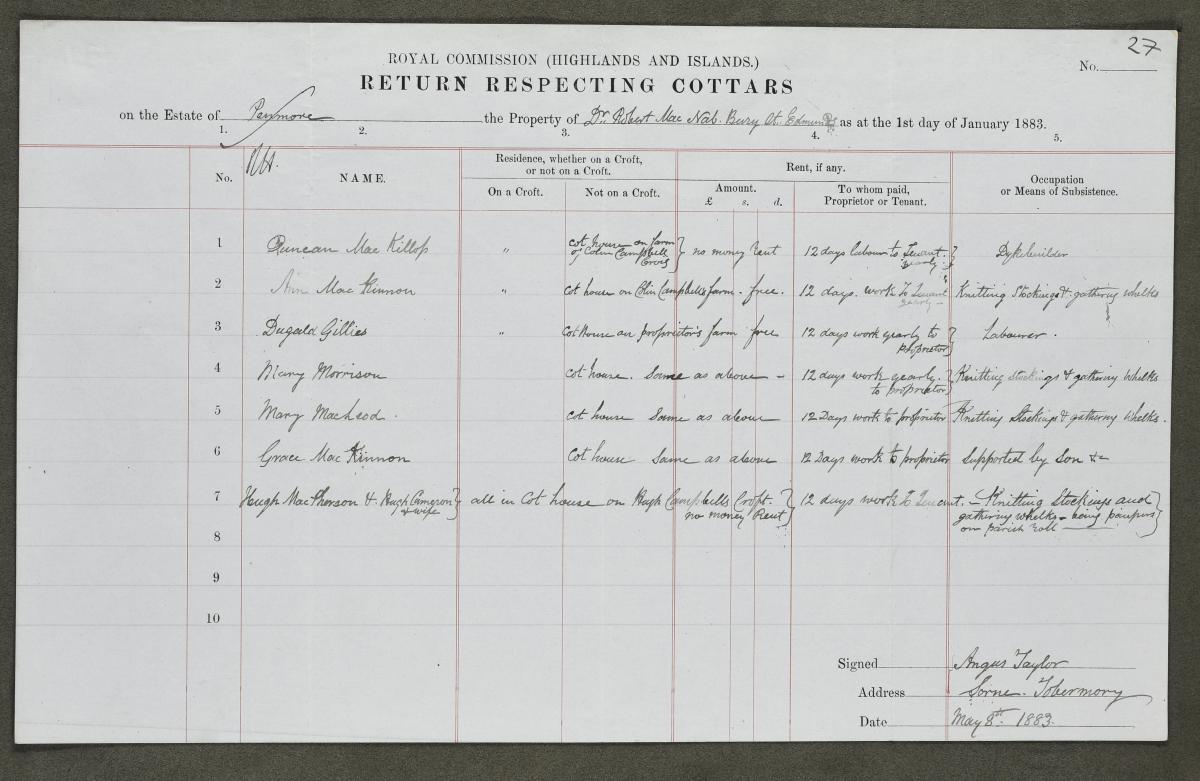 27
ROYAL COMMISSION (HIGHLANDS AND ISLANDS.)
No.
RETURN RESPECTING COTTARS
on the Estate of Penmore the Property of Dr. Robert Mac Nab. Bury St. Edmunds as at the 1st day of January 1883.
1. 2. 3. 4. 5.
No. NAME. Residence, whether on a Croft, or not on a Croft. Rent, if any. Occupation or Means of Subsistence.
On a Croft. Not on a Croft. Amount. £ s. d. To whom paid, Proprietor or Tenant.
1 Duncan Mac Killop " cot house on farm of Colin Campbell Crois } no money rent 12 days labour to Tenant. yearly } Dykebuilder
2 Ann Mac Kinnon " cot house on Colin Campbell's farm - free. 12 days. work To Tenant yearly Knitting Stockings & gathering whelks
3 Dugald Gillies " Cot House on proprietor's farm free 12 days work yearly to proprietor } Labourer.
4 Mary Morrison cot house. Same as above - 12 days work yearly. to proprietor } Knitting stockings & gathering Whelks
5 Mary MacLeod. cot house Same as above 12 Days work to proprietor Knitting Stockings & gathering Whelks.
6 Grace Mac Kinnon Cot house Same as above 12 Days work to proprietor supported by Son &c
7 Hugh MacPherson & Hugh Cameron & wife } all in Cot house on Hugh Campbells Croft. no money Rent } 12 days work To Tenant. - Knitting Stockings and gathering whelks - being paupers on parish roll }
8
9
10
Signed Angus Taylor
Address Sorne. Tobermory
Date May 8th. 1883.